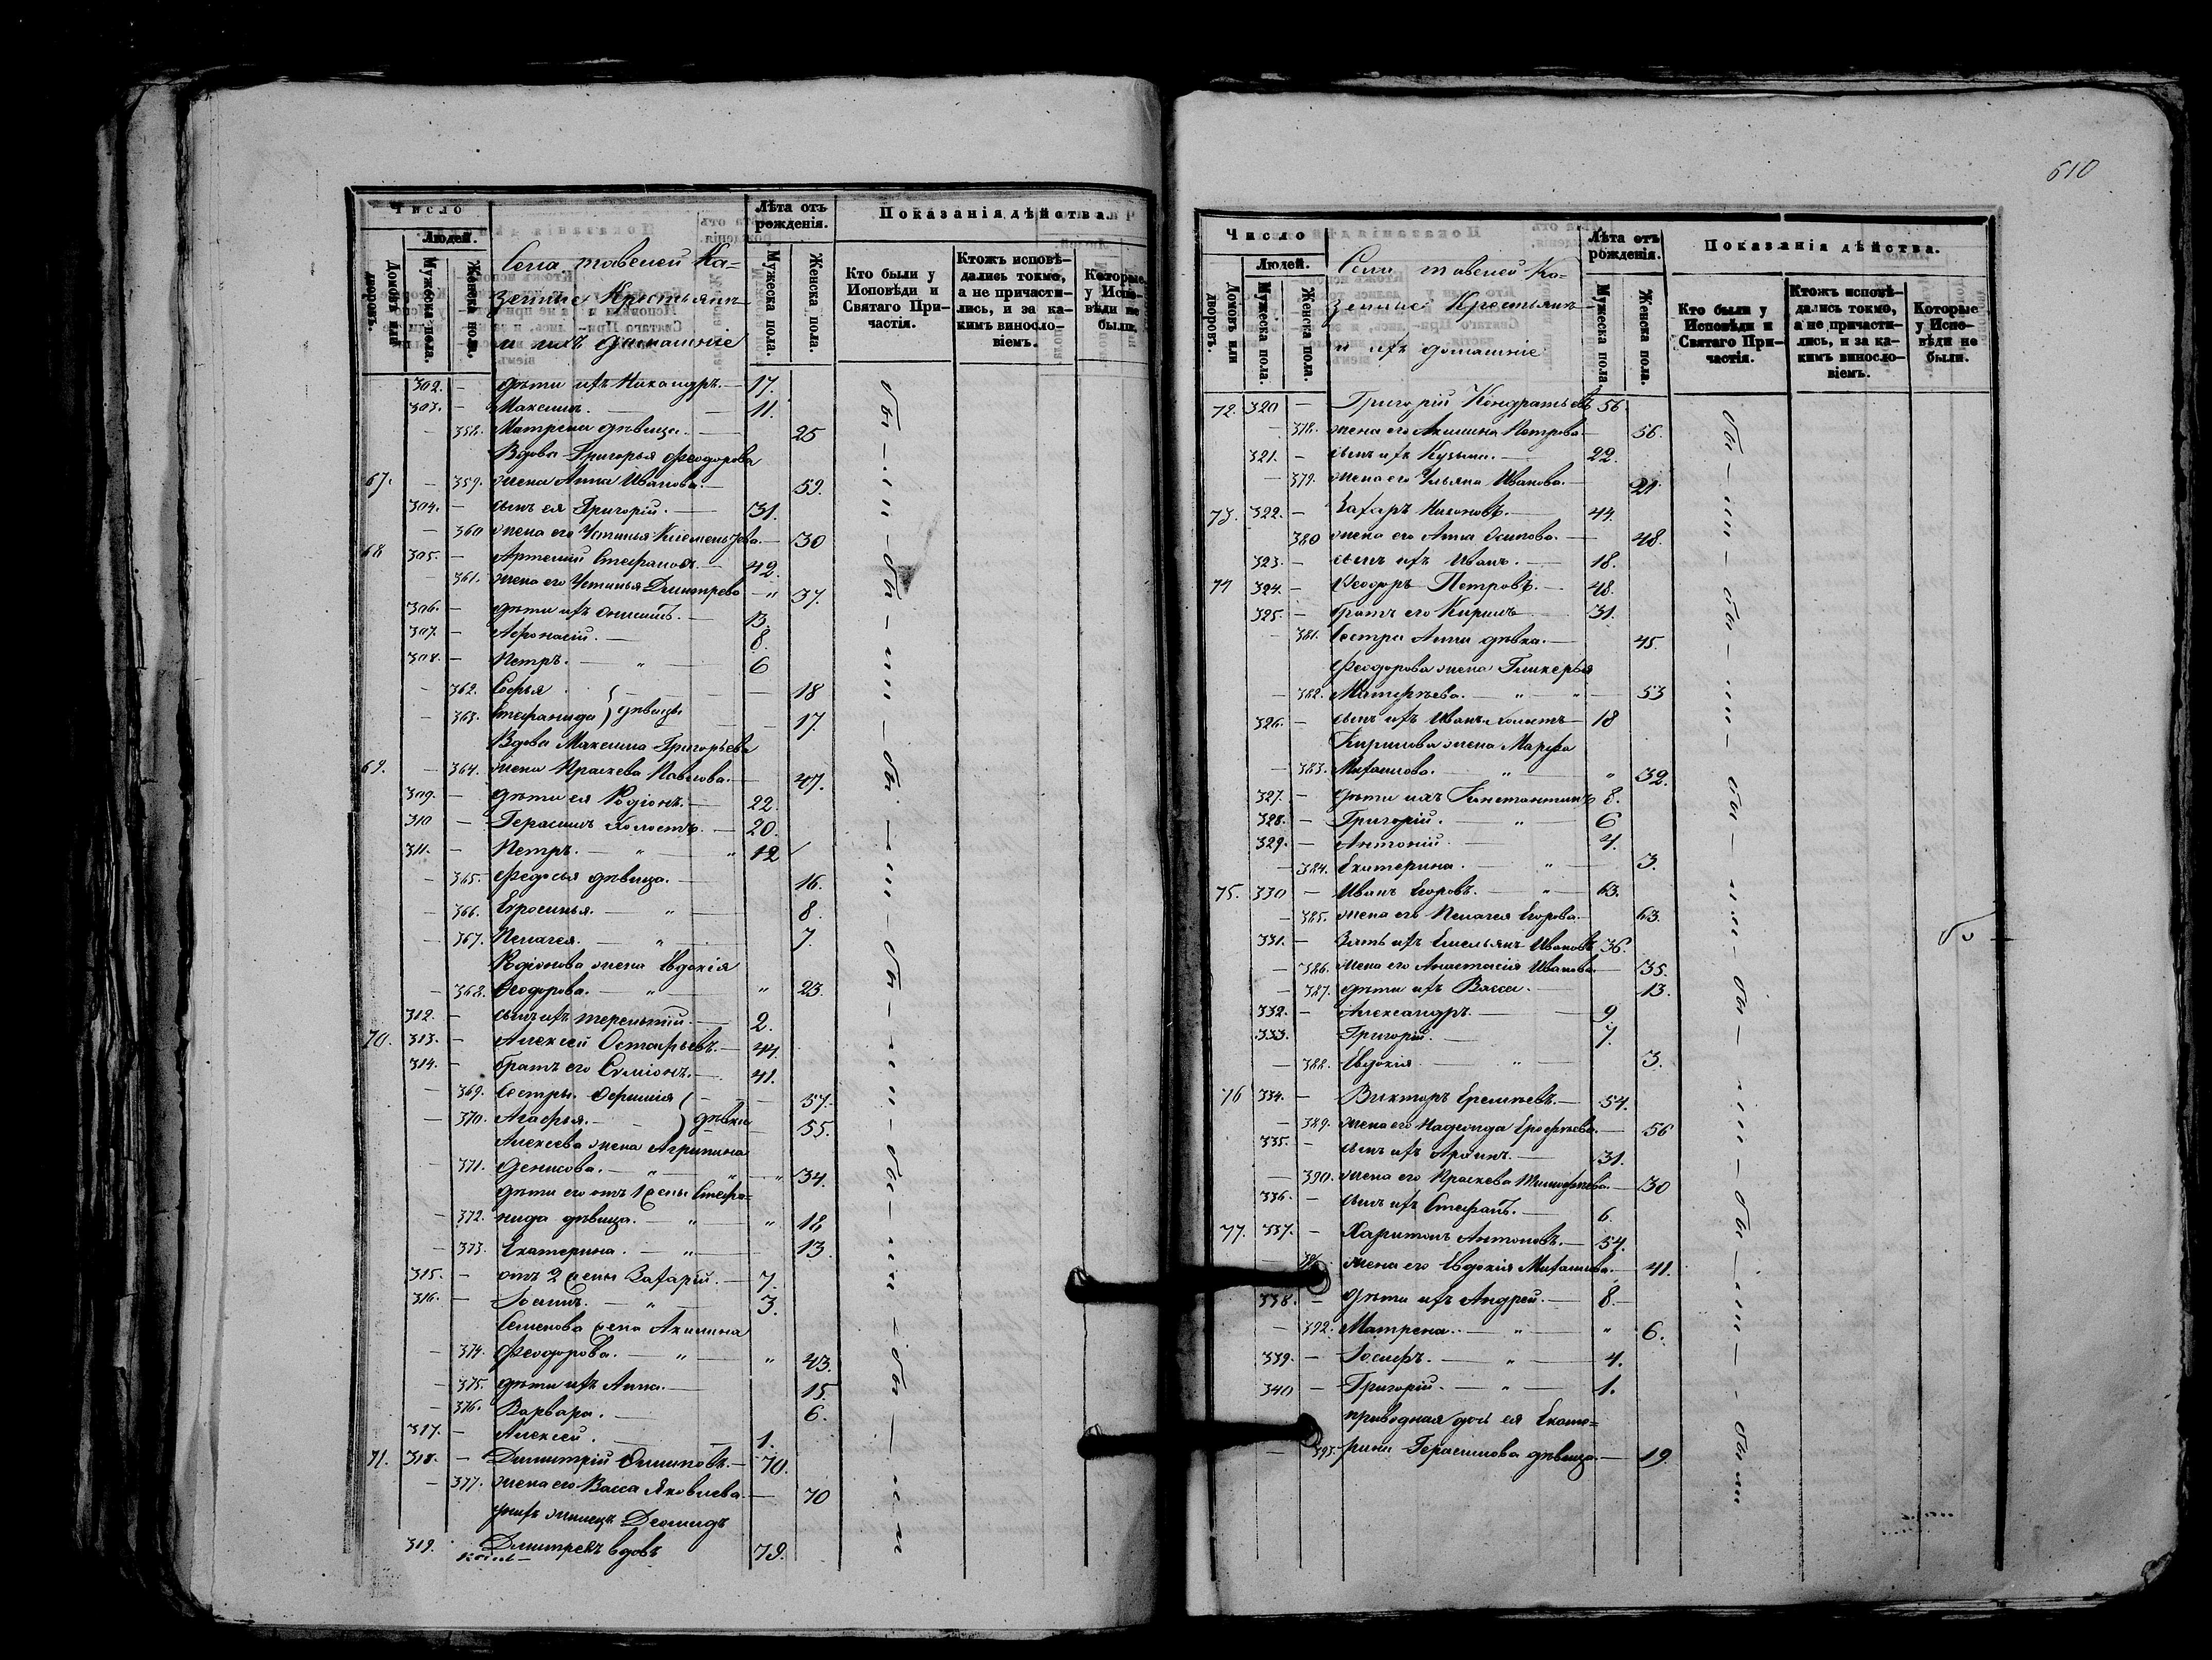 Число
Людей.
Домовъ или дворовъ.
Мужеска пола.
Женска пола.
Села тавелей Ка=
зенные Крестьяне
и ихъ домашніе
Лѣта отъ рожденія.
Мужеска пола.
Женска пола.
Показанія дѣйства.
Кто были у Исповѣди и Святаго При-частія.
Ктожъ исповѣ-дались токмо, а не причасти-лись, и за ка-кимъ винословіемъ.
Которые у Испо-вѣди не были.
302. — дѣти ихъ Никандръ. — 17.
303. — Максимъ. — 11.
— 358. Матрена дѣвица. — 25
Вдова Григорья Феодорова
67. — 359. жена Анна Иванова. — 59.
304. — сынъ ея Григорій. — 31.
— 360 жена его Устинья Клементьева. — 30
68 305. — Артемій Стефановъ. — 42.
— 361. жена его Устинья Димитрева — " 37.
306. — дѣти ихъ Онисимъ. — 13.
307. — Афонасій. — 8.
308. — Петръ. — " — 6
— 362. Софья — 18
— 363. Стефанида } дѣвицы — 17.
Вдова Максима Григорьева
69. — 364. жена Праскева Павлова. — 47.
309. — дѣти ея Родіонъ. — 22.
310 — Герасимъ холостъ. — 20.
311. — Петръ. — " — " 12
— 365. Федосья дѣвица. — 16.
— 366. Ефросинья. — " — 8.
— 367. Пелагея. — " 7.
Родіонова жена Евдокія
— 368. Феодорова. — " — " 23.
312. — сынъ ихъ терентій. — 2.
70. 313. — Алексей Остафьевъ. — 44.
314. — братъ его Симіонъ. — 41.
— 369. Сестры Офимія — 57.
— 370. Агафья. — } дѣвки 55.
Алексева жена Агрипина
— 371. Денисова. — " — " 34.
дѣти его отъ 1 жены Стефа=
— 372. нида дѣвица. — " — " 18
— 373. Екатерина. — " — 13.
315. — отъ 2 жены Захарій. — 7.
316. — Іосифъ. — " — 3.
Семенова жена Акилина
— 374. Феодорова. — " — " 43.
— 375. дѣти ихъ Анна. — 15.
— 376. Варвара. — 6.
317. — Алексей. — 1.
71. 318. — Димитрій — 70.
— 377. жена его Васса Яковлева. — 70
у нихъ жилецъ Деомидъ
319. Димитревъ вдовъ 79.
бы — ли — бы — ли — бы — ли — бы — ли — бы — ли — бы — ли
610
Число
Людей.
Домовъ или дворовъ.
Мужеска пола.
Женска пола.
Села тавелей Ка=
зенные Крестьяне
и ихъ домашніе.
Лѣта отъ рожденія.
Мужеска пола.
Женска пола.
Показанія дѣйства.
Кто были у Исповѣди и Святаго При-частія.
Ктожъ исповѣ-дались токмо, а не причасти-лись, и за ка-кимъ винословіемъ.
Которые у Испо-вѣди не были.
72. 320 — Григорій Кондратьевъ 56.
— 378. жена его Акилина Петрова. — 56.
321. — сынъ ихъ Кузьма. — 22.
— 379. жена его Ульяна Иванова. — 21.
73. 322. — Захаръ Никоновъ. — 44.
380 жена его Анна Осипова. — 48.
323. — сынъ ихъ Иванъ. — 18.
74 324. — Феодоръ Петровъ. — 48.
325. — братъ его Кирилъ — 31.
— 381. Сестра Анна дѣвка. — 45.
Феодорова жена Гликерья
— 382. Матфѣева. — " — " — 53
326. — сынъ ихъ Иванъ холостъ — 18
Кирилова жена Марфа
— 383. Михайлова. " — " 32.
327. — дѣти ихъ Константинъ 8.
328. — Григорій. — " — 6
329. — Антоній. — 4.
— 384. Екатерина. — " — 3.
75. 330 — Иванъ Егоровъ. — " — 63.
— 385. жена его Пелагея Егорова. — 63.
331. — Зять ихъ Емельянъ Ивановъ 36.
— 386. жена его Анастасія Иванова. — 35.
— 387. дѣти ихъ Васса. — 13.
332. — Александръ. — 9
333. Григорій. — 7.
— 388. Евдокія — " — 3.
76 334. — Викторъ Еремѣевъ. — 54.
— 389. жена его Надежда Ерофѣева. — 56
335. — сынъ ихъ — 31.
— 390. жена его Праскева Тимофѣева. — 30
336. — сынъ ихъ Стефанъ. — 6.
77. 337. — Харитонъ Антоновъ. — 54.
391 жена его Евдокія Михайлова. — 41.
338. — дѣти ихъ Андрей. — 8.
— 392. Матрена. — " — " 6.
339. — Іосифъ. — " — 4.
340 — Григорій. — " — 1.
приводная дочь ея Екате=
— 393. рина Герасимова дѣвица. — 19
бы — ли — бы — ли — бы — ли — бы — ли — бы — ли — бы ли